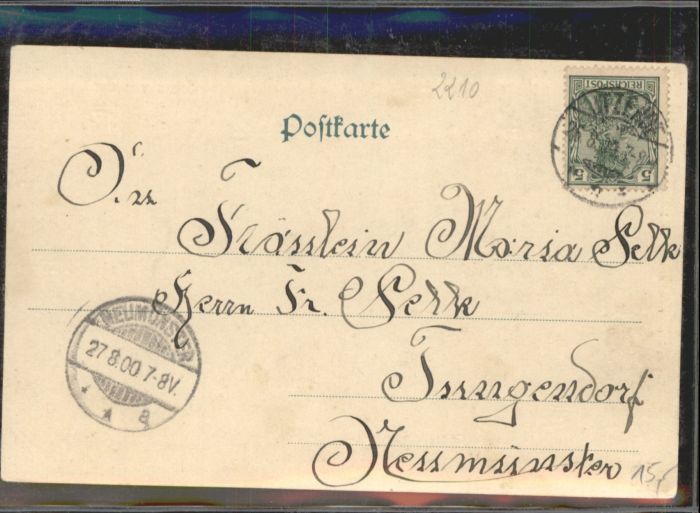 2210
Postkarte
REICHSPOST
5 5
An
Fräulein Maria Selk
Herrn Fr. Selk
Tungendorf
Neumünster
NEUMÜNSTER
27.8.00 7-8V.
* a
15,-